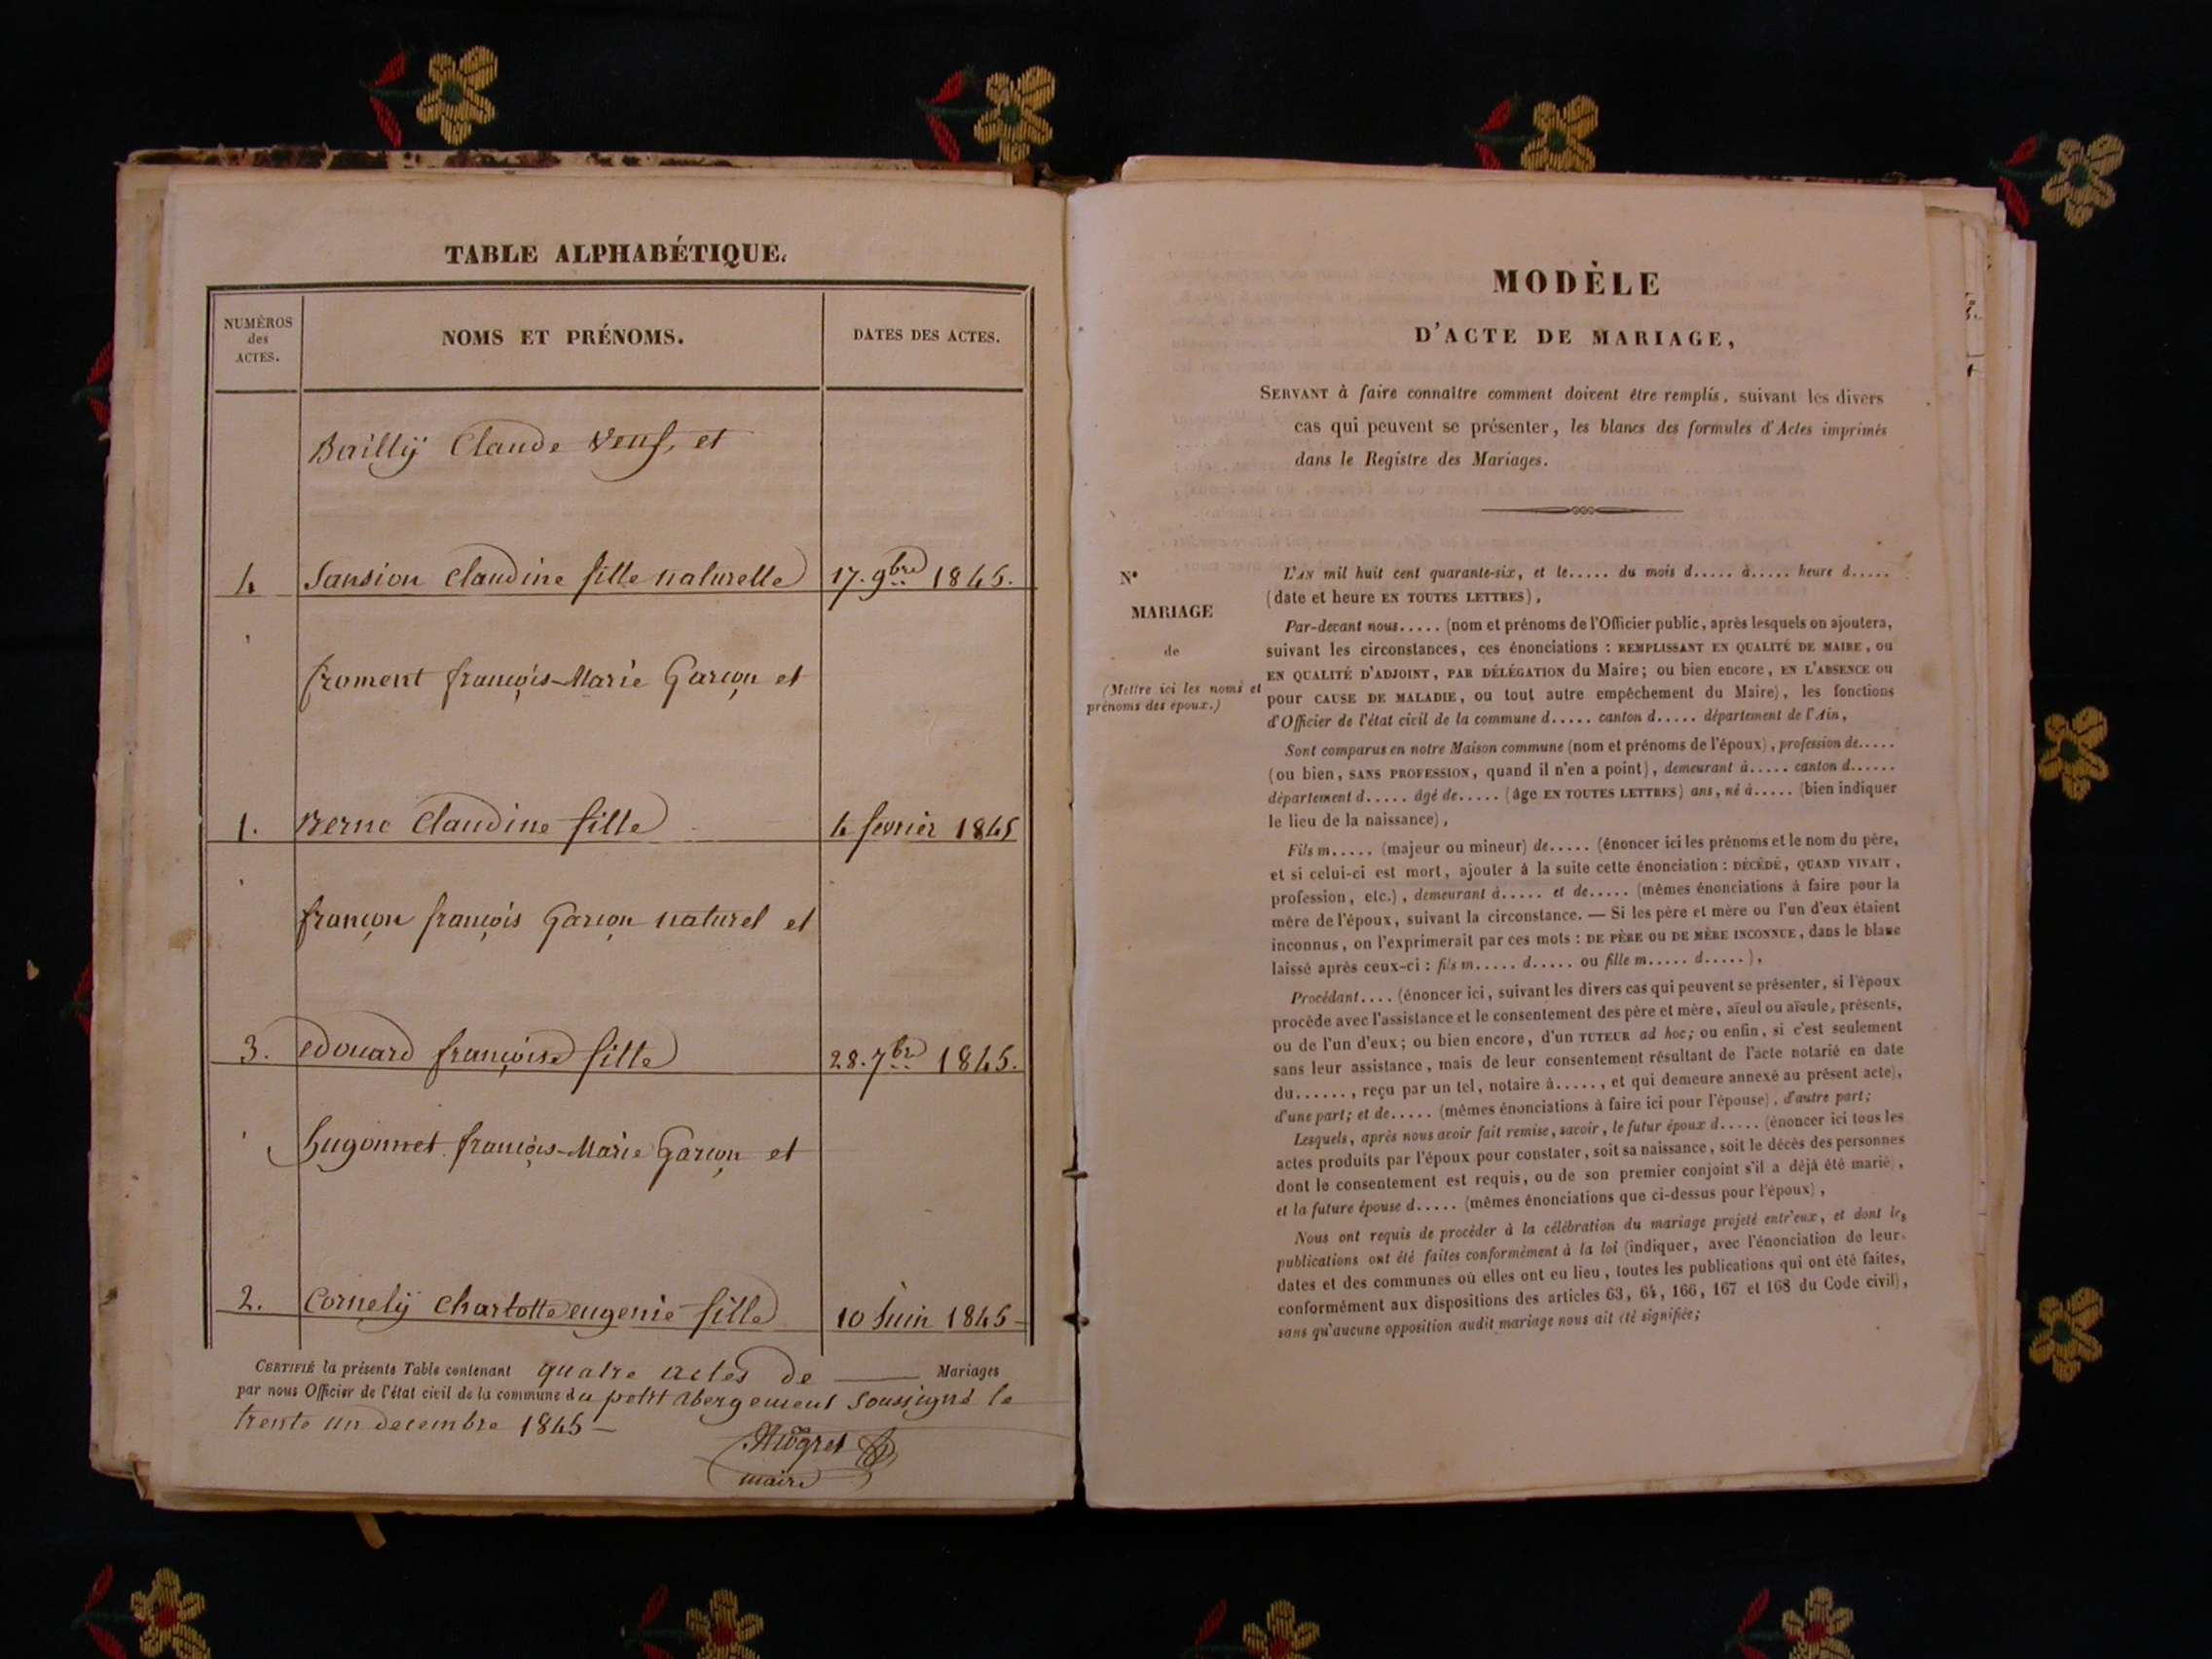 TABLE ALPHABÉTIQUE.
NUMÉROS
des
ACTES.
NOMS ET PRÉNOMS.
DATES DES ACTES.
Bailly Claude Veuf, et
4 Sansion Claudine fille naturelle 17. 9bre 1845.
froment françois-Marie Garçon et
1. Berne Claudine fille 4 fevrier 1845
françon françois Garçon naturel et
3. edouard françoise fille 28. 7bre 1845.
hugonnet françois-Marie Garçon et
2. Cornely Charlotte eugenie fille 10 Juin 1845
CERTIFIÉ la présente Table contenant quatre actes de Mariages
par nous Officier de l'état civil de la commune du petit abergement soussigné le
trente un decembre 1845
maire
MODÈLE
D'ACTE DE MARIAGE,
SERVANT à faire connaître comment doivent être remplis, suivant les divers
cas qui peuvent se présenter, les blancs des formules d'Actes imprimés
dans le Registre des Mariages.
N°
MARIAGE
de
(Mettre ici les noms et
prénoms des époux.)
L'AN mil huit cent quarante-six, et le..... du mois d..... à..... heure d.....
(date et heure EN TOUTES LETTRES),
Par-devant nous..... (nom et prénoms de l'Officier public, après lesquels on ajoutera,
suivant les circonstances, ces énonciations : REMPLISSANT EN QUALITÉ DE MAIRE, ou
EN QUALITÉ D'ADJOINT, PAR DÉLÉGATION du Maire; ou bien encore, EN L'ABSENCE ou
pour CAUSE DE MALADIE, ou tout autre empêchement du Maire), les fonctions
d'Officier de l'état civil de la commune d..... canton d..... département de l'Ain,
Sont comparus en notre Maison commune (nom et prénoms de l'époux), profession de.....
(ou bien, SANS PROFESSION, quand il n'en a point), demeurant à..... canton d......
département d..... âgé de..... (âge EN TOUTES LETTRES) ans, né à..... (bien indiquer
le lieu de la naissance),
Fils m..... (majeur ou mineur) de..... (énoncer ici les prénoms et le nom du père,
et si celui-ci est mort, ajouter à la suite cette énonciation : DÉCÉDÉ, QUAND VIVAIT,
profession, etc.), demeurant à..... et de..... (mêmes énonciations à faire pour la
mère de l'époux, suivant la circonstance. — Si les père et mère ou l'un d'eux étaient
inconnus, on l'exprimerait par ces mots : DE PÈRE OU DE MÈRE INCONNUE, dans le blanc
laissé après ceux-ci : fils m..... d..... ou fille m..... d.....),
Procédant.... (énoncer ici, suivant les divers cas qui peuvent se présenter, si l'époux
procède avec l'assistance et le consentement des père et mère, aïeul ou aïeule, présents,
ou de l'un d'eux; ou bien encore, d'un TUTEUR ad hoc; ou enfin, si c'est seulement
sans leur assistance, mais de leur consentement résultant de l'acte notarié en date
du......, reçu par un tel, notaire à....., et qui demeure annexé au présent acte),
d'une part; et de..... (mêmes énonciations à faire ici pour l'épouse), d'autre part;
Lesquels, après nous avoir fait remise, savoir, le futur époux d..... (énoncer ici tous les
actes produits par l'époux pour constater, soit sa naissance, soit le décès des personnes
dont le consentement est requis, ou de son premier conjoint s'il a déjà été marié),
et la future épouse d..... (mêmes énonciations que ci-dessus pour l'époux),
Nous ont requis de procéder à la célébration du mariage projeté entr'eux, et dont les
publications ont été faites conformément à la loi (indiquer, avec l'énonciation de leurs
dates et des communes où elles ont eu lieu, toutes les publications qui ont été faites,
conformément aux dispositions des articles 63, 64, 166, 167 et 168 du Code civil),
sans qu'aucune opposition audit mariage nous ait été signifiée;